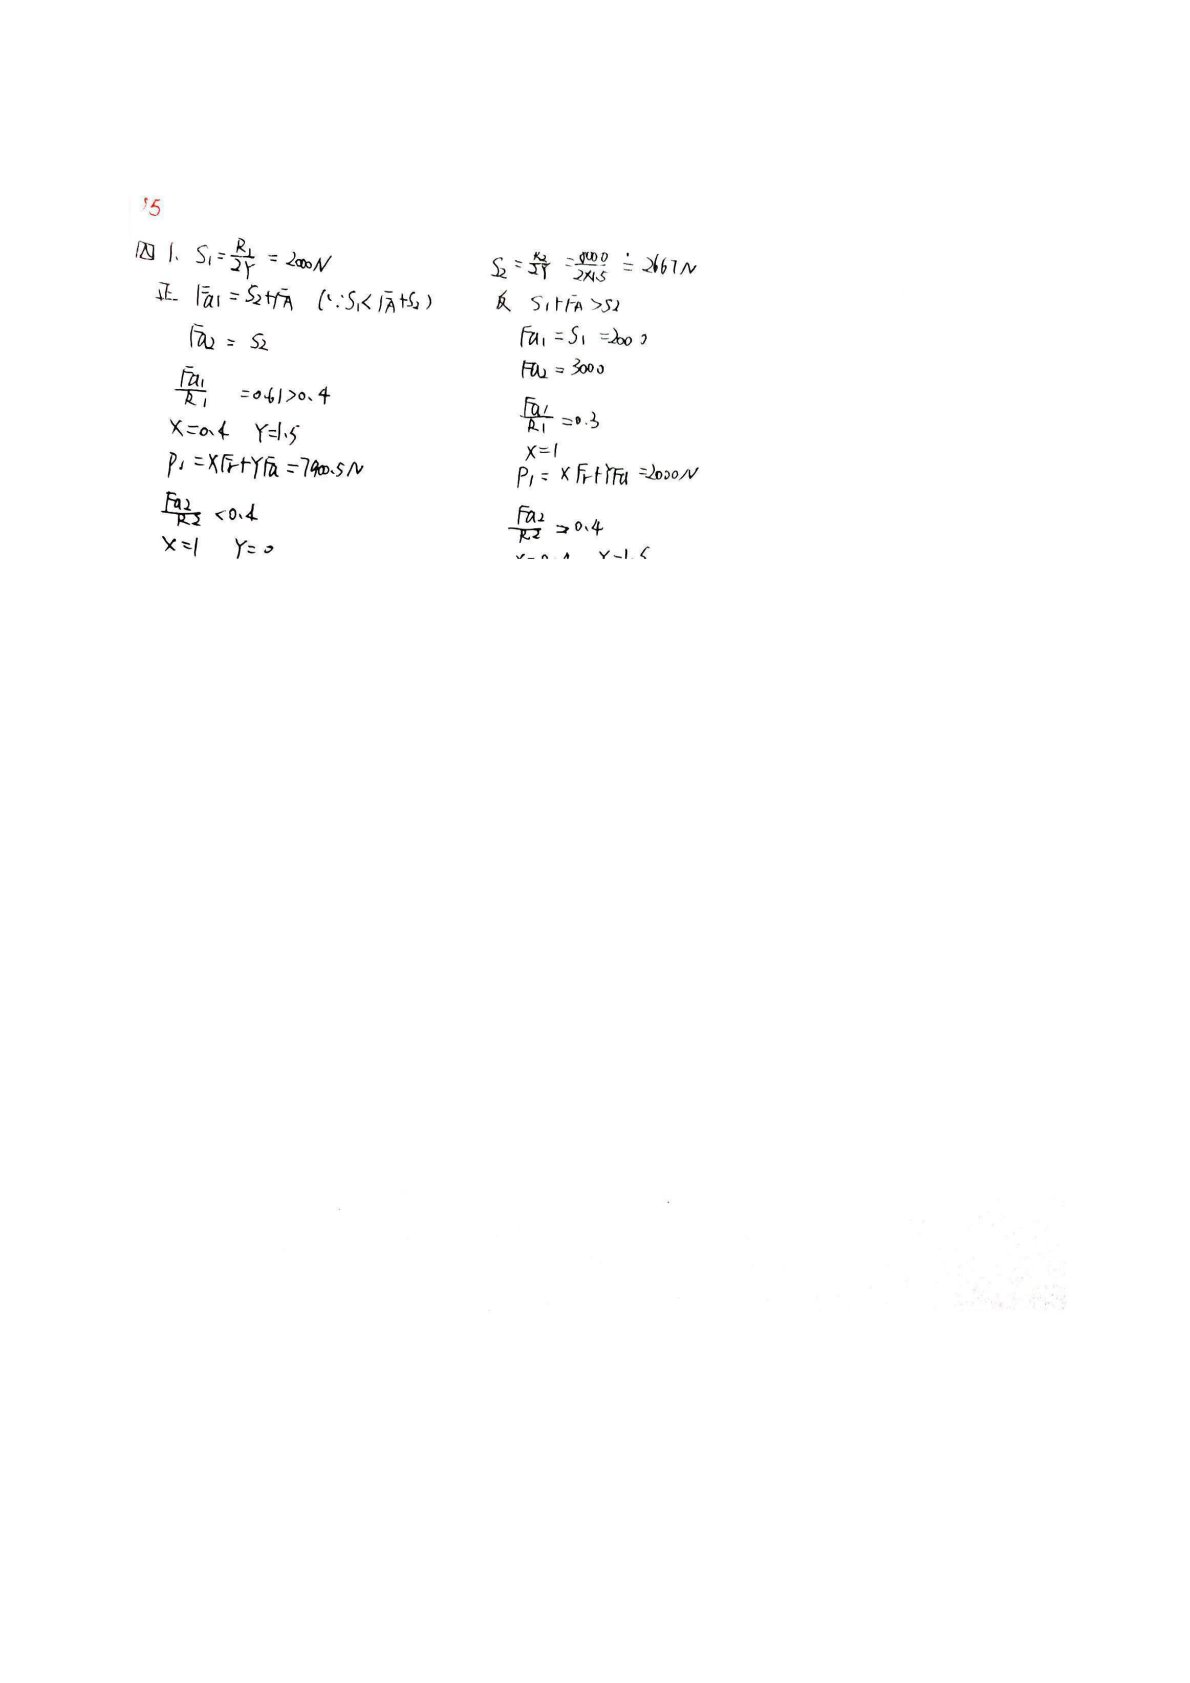 15
四 1. S₁ = R₁/2Y = 2000N
正 Fa₁ = S₂+FA (∵S₁<FA+S₂)
Fa₂ = S₂
Fa₁/R₁ = 0.61>0.4
X=0.4 Y=1.5
P₁ = XFr+YFa = 7900.5N
Fa₂/R₂ <0.4
X=1 Y=0
S₂ = R₂/2Y = 8000/2×1.5 ≐ 2667N
反 S₁+FA >S₂
Fa₁ = S₁ =2000
Fa₂ = 3000
Fa₁/R₁ =0.3
X=1
P₁ = XFr+YFa =2000N
Fa₂/R₂ >0.4
X=0.4 Y=1.5